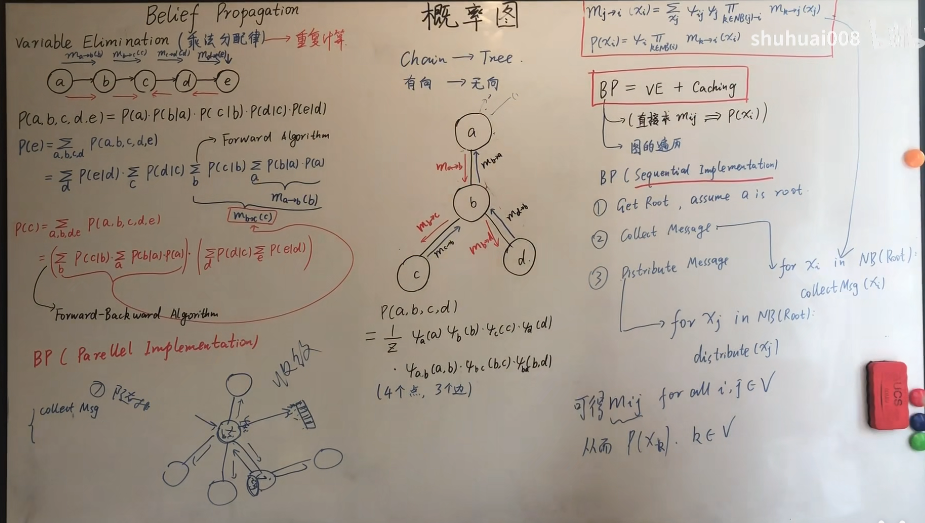 Belief Propagation
概率图
Variable Elimination (乘法分配律) → 重复计算
m_{a→b}(b) m_{b→c}(c) m_{d→c}(c) m_{e→d}(d)
a b c d e
P(a,b,c,d,e) = P(a)·P(b|a)·P(c|b)·P(d|c)·P(e|d)
P(e) = Σ_{a,b,c,d} P(a,b,c,d,e)
Forward Algorithm
= Σ_d P(e|d)·Σ_c P(d|c) Σ_b P(c|b) Σ_a P(b|a)·P(a)
m_{a→b}(b)
m_{b→c}(c)
P(c) = Σ_{a,b,d,e} P(a,b,c,d,e)
= (Σ_b P(c|b)·Σ_a P(b|a)·P(a))·(Σ_d P(d|c) Σ_e P(e|d))
Forward-Backward Algorithm
BP (Parellel Implementation)
collect Msg
Chain → Tree.
有向 → 无向
a
m_{a→b} m_{b→a}
b
m_{b→c} m_{c→b} m_{b→d} m_{d→b}
c d
P(a,b,c,d)
= 1/Z ψ_a(a) ψ_b(b)·ψ_c(c)·ψ_d(d)
· ψ_{a,b}(a,b)·ψ_{bc}(b,c)·ψ_{bd}(b,d)
(4个点, 3个边)
m_{j→i}(x_i) = Σ_{x_j} ψ_{ij} ψ_j Π_{k∈NB(j)-i} m_{k→j}(x_j)
P(x_i) = ψ_i Π_{k∈NB(i)} m_{k→i}(x_i)
shuhuai008
BP = VE + Caching
(直接求 m_{ij} ⇒ P(x_i))
图的遍历
BP (Sequential Implementation)
① Get Root, assume a is root
② Collect Message
for x_i in NB(Root):
collectMsg(x_i)
③ Distribute Message
for x_j in NB(Root):
distribute(x_j)
可得 m_{ij} for all i,j∈V
从而 P(x_k). k∈V